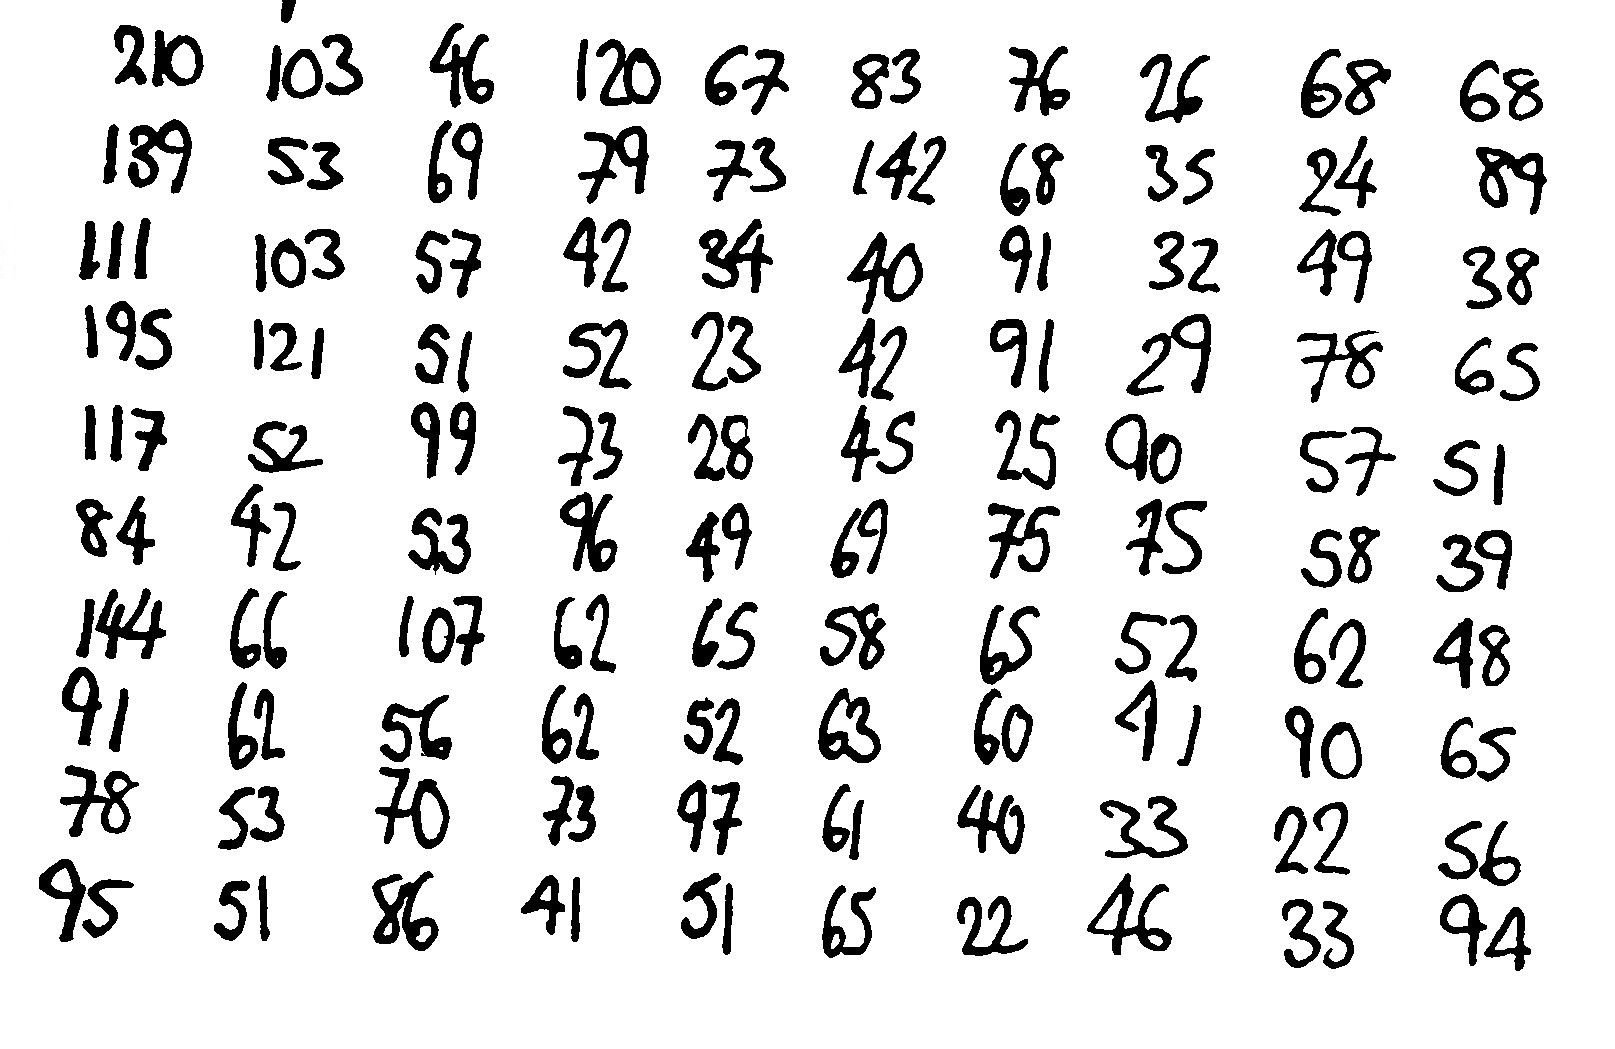 210 103 46 120 67 83 76 26 68 68
139 53 69 79 73 142 68 35 24 89
111 103 57 42 34 40 91 32 49 38
195 121 51 52 23 42 91 29 78 65
117 52 99 73 28 45 25 90 57 51
84 42 53 96 49 69 75 75 58 39
144 66 107 62 65 58 65 52 62 48
91 62 56 62 52 63 60 41 90 65
78 53 70 73 97 61 40 33 22 56
95 51 86 41 51 65 22 46 33 94